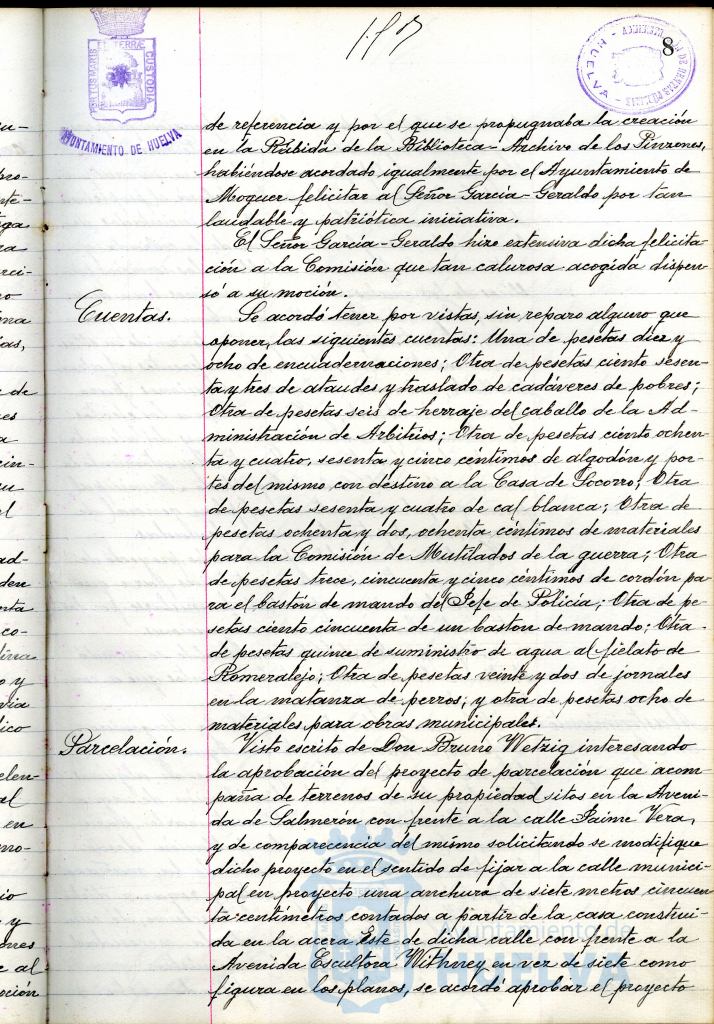 8
PORTUS MARIS ET TERRÆ CUSTODIA
AYUNTAMIENTO DE HUELVA
HUELVA
de referencia y por el que se propugnaba la creación
en la Rábida de la Biblioteca-Archivo de los Pinzones,
habiéndose acordado igualmente por el Ayuntamiento de
Moguer felicitar al Señor García-Geraldo por tan
laudable y patriótica iniciativa.
El Señor García-Geraldo hizo extensiva dicha felicita-
ción a la Comisión que tan calurosa acogida dispen-
só a su moción.
Cuentas.
Se acordó tener por vistas, sin reparo alguno que
oponer, las siguientes cuentas: Una de pesetas diez y
ocho de encuadernaciones; Otra de pesetas ciento sesen-
ta y tres de ataudes y traslado de cadáveres de pobres;
Otra de pesetas seis de herraje del caballo de la Ad-
ministración de Arbitrios; Otra de pesetas ciento ochen-
ta y cuatro, sesenta y cinco céntimos de algodón y por-
tes del mismo con destino a la Casa de Socorro; Otra
de pesetas sesenta y cuatro de cal blanca; Otra de
pesetas ochenta y dos, ochenta céntimos de materiales
para la Comisión de Mutilados de la guerra; Otra
de pesetas trece, cincuenta y cinco céntimos de cordón pa
ra el bastón de mando del Jefe de Policía; Otra de pe-
setas ciento cincuenta de un baston de mando; Otra
de pesetas quince de suministro de agua al fielato de
Romeralejo; Otra de pesetas veinte y dos de jornales
en la matanza de perros; y otra de pesetas ocho de
materiales para obras municipales.
Parcelación.
Visto escrito de Don Bruno Wetzig interesando
la aprobación del proyecto de parcelación que acom-
paña de terrenos de su propiedad sitos en la Aveni-
da de Salmerón con frente a la calle Jaime Vera,
y de comparecencia del mismo solicitando se modifique
dicho proyecto en el sentido de fijar a la calle munici-
pal en proyecto una anchura de siete metros cincuen
ta centímetros contados a partir de la casa construi-
da en la acera Este de dicha calle con frente a la
Avenida Escultora Withney en vez de siete como
figura en los planos, se acordó aprobar el proyecto
Ayuntamiento de
HUELVA